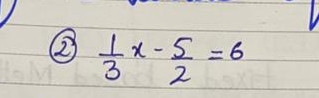 ② 1/3 x - 5/2 = 6